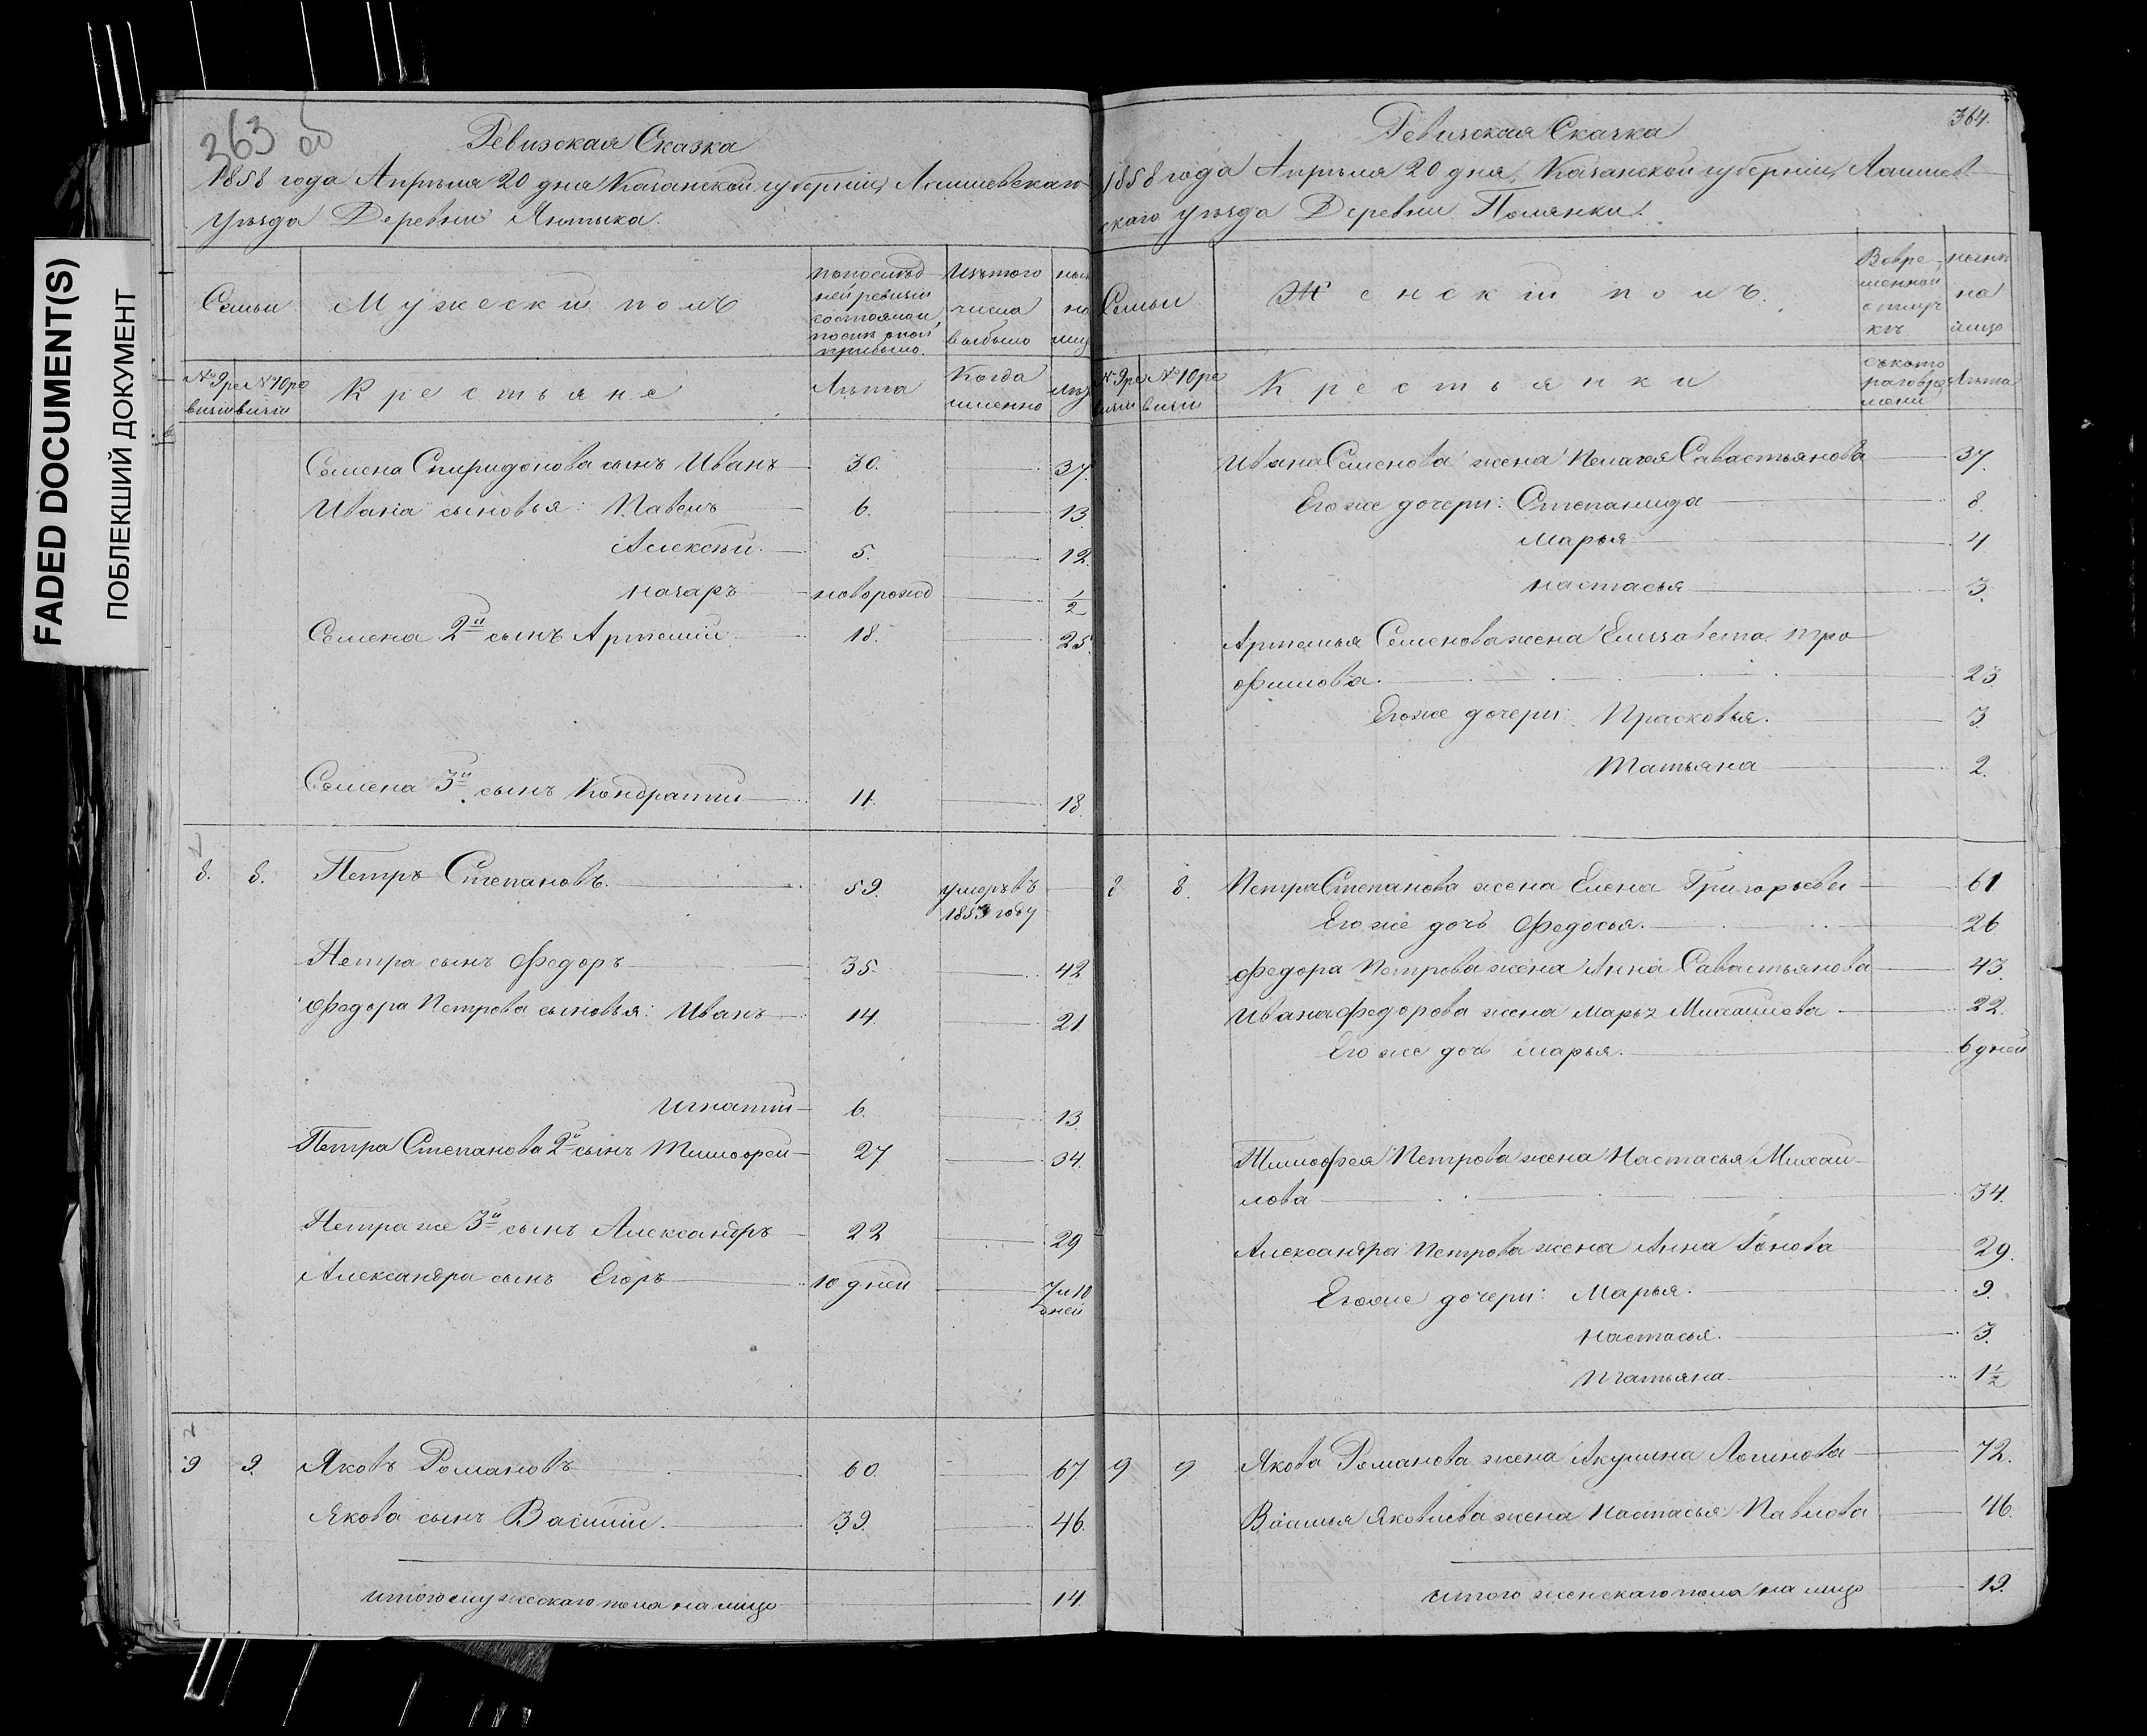 FADED DOCUMENT(S)
ПОБЛЕКШИЙ ДОКУМЕНТ
363 об
Ревизская Сказка
1858 года Апрѣля 20 дня Казанской губерніи, Лаишевскаго
Уѣзда Деревни Янтыка.
Семьи
Мужескій полъ
по послѣд
ней ревизіи
состояло и
послѣ оной
прибыло.
Изъ того
числа
выбыло
нын
на
лиц
№ 9 ре
визіи
№ 10 ре
визіи
Крестьяне
Лѣта
Когда
именно
Лѣт
Семена Спиридонова сынъ Иванъ 30. 37.
Ивана сыновья: Павелъ 6. 13.
Алексѣй. 5. 12.
Назаръ новорожд 1/2
Семена 2й сынъ Артемій. 18. 25.
Семена 3й сынъ Кондратій 11. 18.
8. 8. Петръ Степановъ. 59. умеръ въ
1853 году
Петра сынъ Федоръ 35. 42
Федора Петрова сыновья: Иванъ 14. 21
Игнатій 6. 13
Петра Степанова 2й сынъ Тимофей 27 34.
Петра же 3й сынъ Александръ 22 29
Александра сынъ Егоръ 10 дней 7 и 10
дней
9 9. Яковъ Романовъ 60. 67
Якова сынъ Василій. 39. 46.
итого мужескаго пола на лицо 14.
364.
Ревизская Сказка
1858 года Апрѣля 20 дня, Казанской губерніи, Лаишев
скаго уѣзда Деревни Полянки.
Семьи
Женскій полъ.
Во вре
менной
отлуч
кѣ
нынѣ
на
лицо
№ 9 ре
визіи
№ 10 ре
визіи
Крестьянки
съ кото
раго вре
мени
Лѣта
Ивана Семенова жена Пелагея Савастьянова 37.
Его же дочери: Степанида 8.
Марья 4
Настасья 3.
Артемья Семенова жена Елизавета Тро
фимова. 23
Его же дочери: Прасковья. 3.
Татьяна 2.
8 8. Петра Степанова жена Елена Григорьева 61
Его же дочь Федосья. 26
Федора Петрова жена Анна Савастьянова 43.
Ивана Федорова жена Марья Михайлова 22.
Его же дочь Марья. 6 дней
Тимофея Петрова жена Настасья Михай
лова 34.
Александра Петрова жена Анна 29.
Его же дочери: Марья. 9.
Настасья. 3.
Татьяна 1 1/2
9 9 Якова Романова жена Акулина Логинова 72.
Василья Яковлева жена Настасья Павлова 46.
итого женскаго пола на лицо 19.